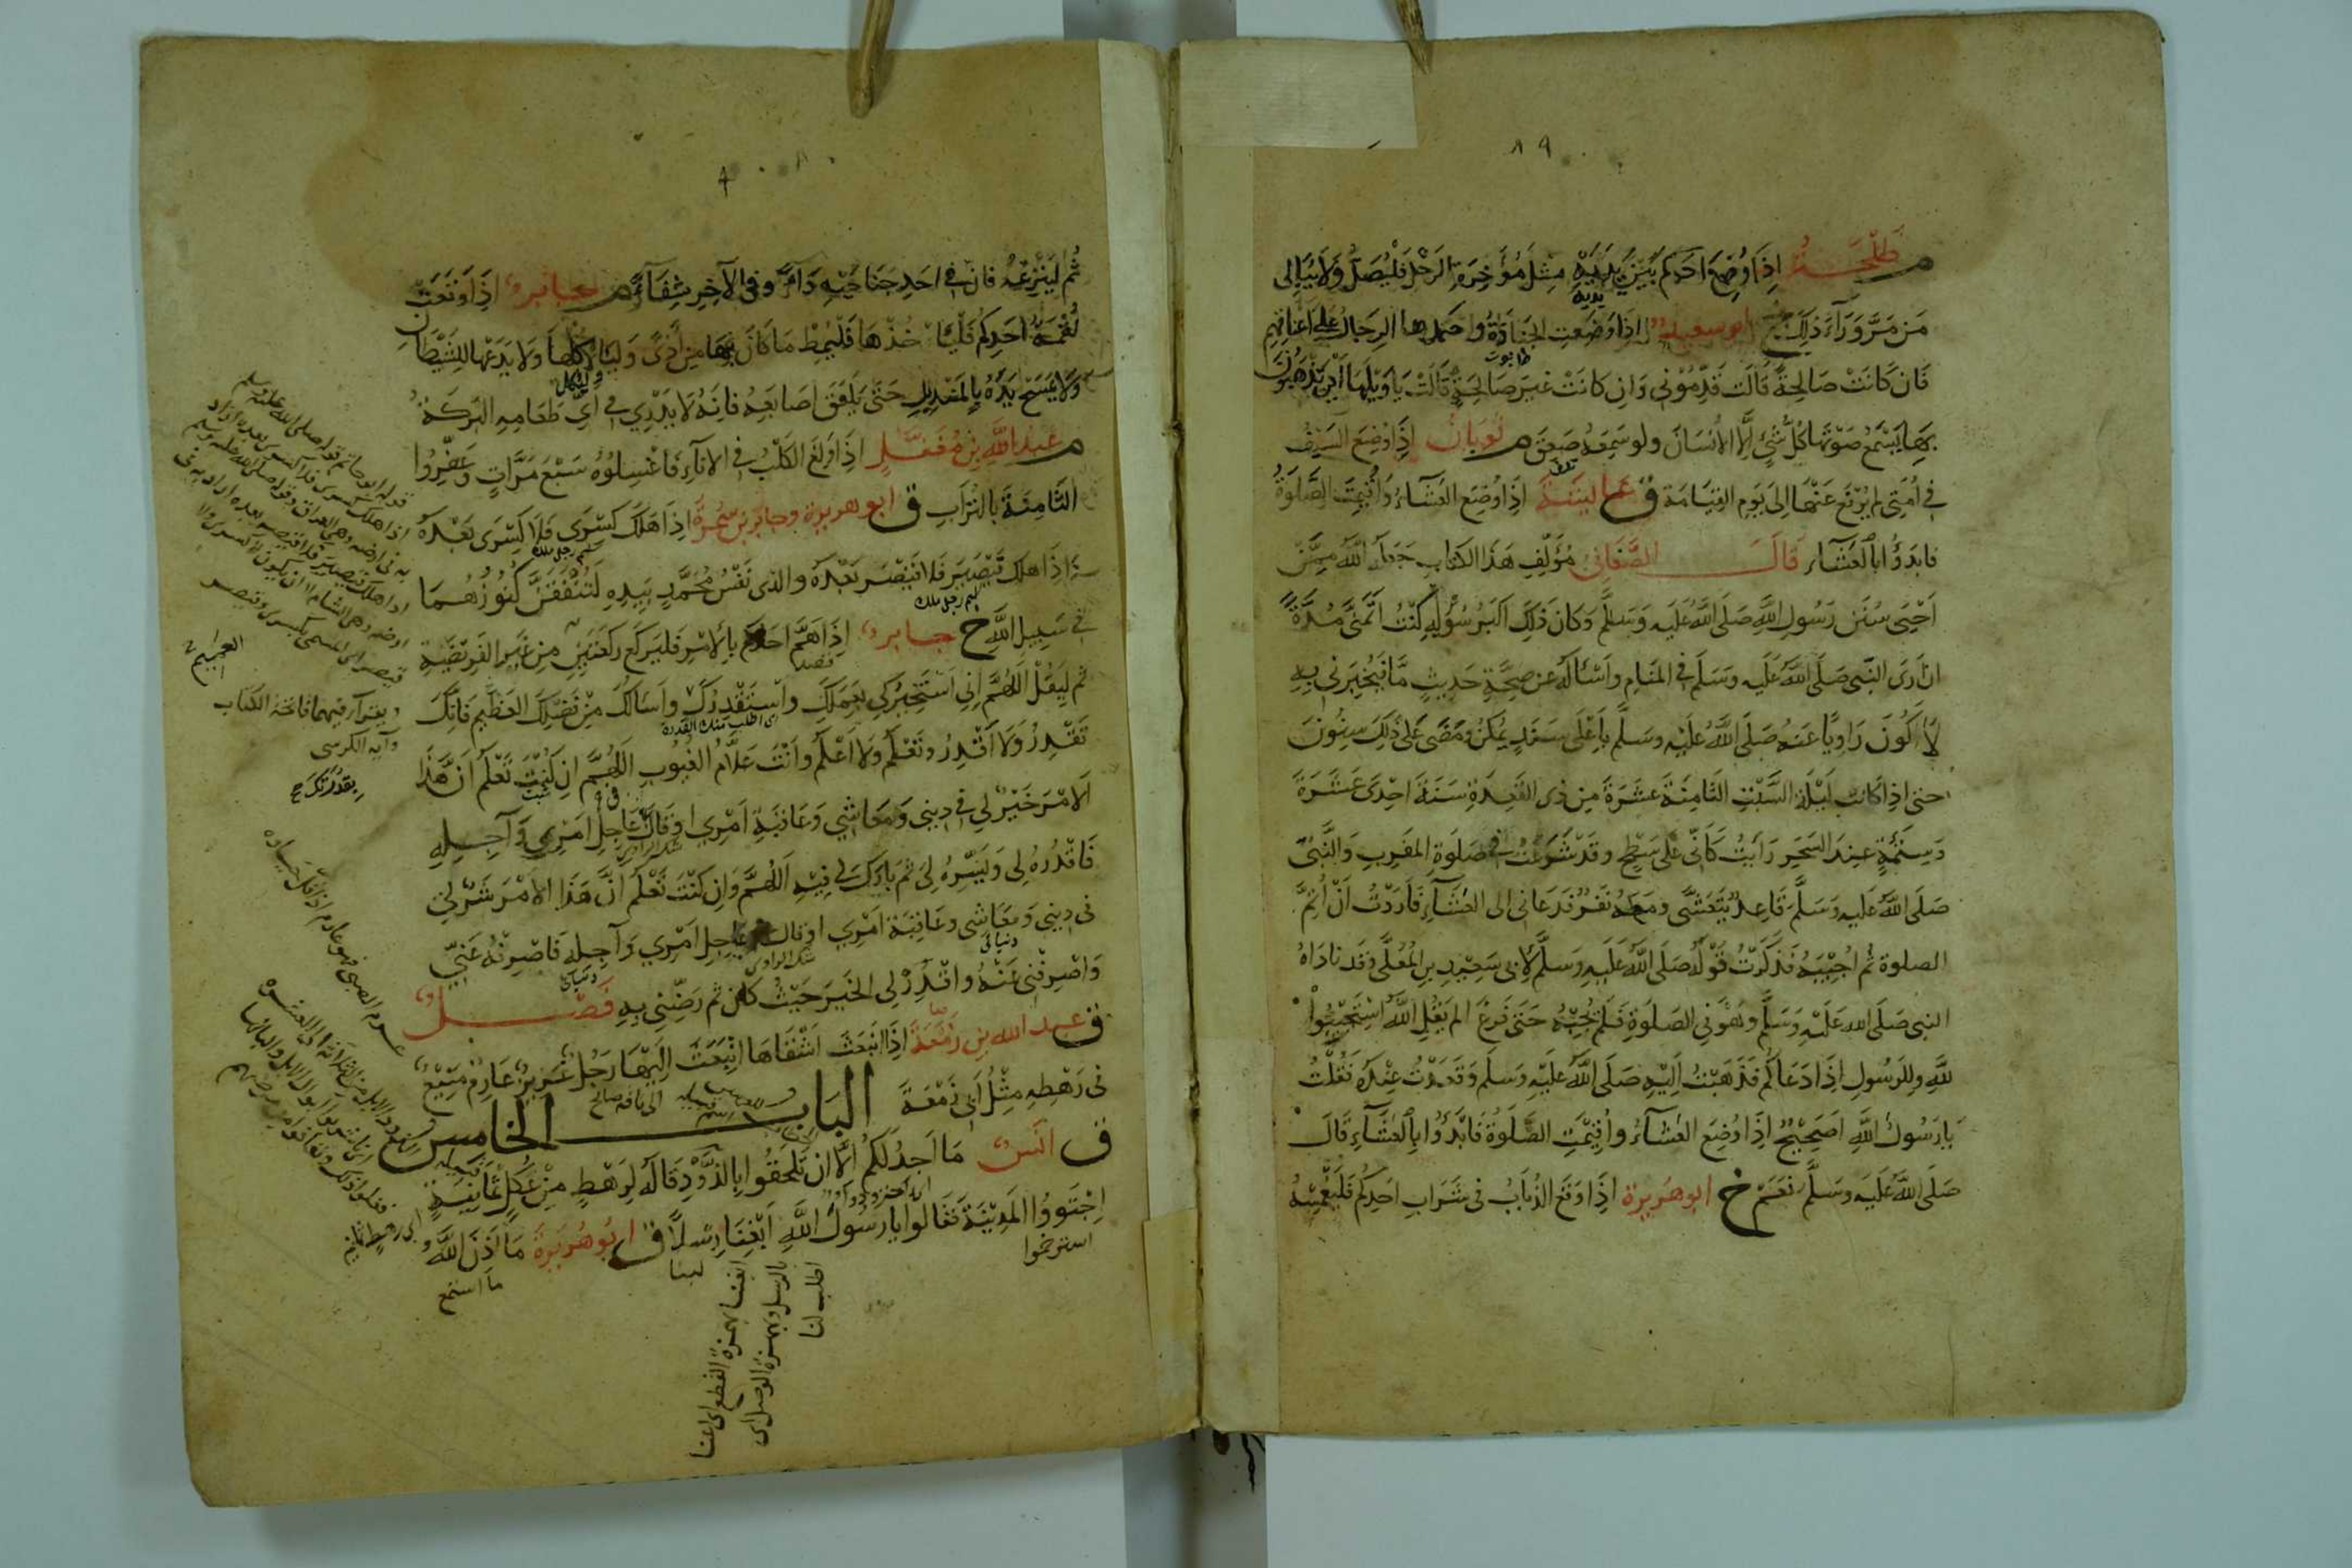 ٨٩
م طَلْحَةُ اِذَا وُضِعَ اَحَدِكُم بَيْنَ يَدَيْهِ مِثْلَ مُؤَخِرَةِ الرَحْلِ فَلْيُصَلِّ وَلَا يُبَالِى
مَن مَرَّ وَرَآءَ ذٰلِكَ خ ابو سعيد اِذَا وُضِعَتِ الجَنَازَةُ واحتملها الرِجَالُ عَلى اَعْنَاقِهِم
فَان كَانَتْ صَالِحةً قَالَت قَدِّمُوْنِى وَاِن كَانَتْ غَيرَ صَالِحَةٍ قَالَتْ يَا وَيْلَهَا اَيْنَ يَذْهَبُونَ
بِهَا يَسْمَعُ صَوْتَهَا كُلُّ شَيْءٍ اِلَّا الاِنْسَانَ ولو سَمِعَهُ صَعِقَ م ثَوبَانُ اِذَا وُضِعَ السَيْفُ
فى اُمَّتِى لم يُرْفَع عَنْهَا اِلىَ يَوم القِيَامَة ق عَايِشَةُ اِذَا وُضِعَ العَشَاءُ وَاُقِيمَتِ الصَّلٰوةُ
فابدَؤُا بالعَشَاءِ قَالَ الصَّغَانِىُّ مُؤَلِّفِ هَذَا الكتاب جَعَلَهُ اللهُ مِمَّن
اَحْيَى سُنَنَ رَسُولِ اللهِ صَلَى اللهُ عَلَيهِ وَسَلَّم وَكَانَ ذٰلِكَ اَكْبَرَ سُؤْلِهِ كُنْتُ اَتَمَنَّى مُدَّةً
ان اَرَى النَبِى صَلَى اللهُ عَلَيهِ وَسَلَم فى المَنَامِ واَسْئَالَهُ عن صِحَّةِ حَدِيثٍ مَّا فَيُخْبِرَنى بِهِ
لِاَكُونَ رَاوِيًا عَنهُ صَلَى اللهُ عَلَيْهِ وسَلم بِاَعْلَى سَنَدٍ يُمكِنُ وَمَضَى عَلىَ ذٰلِكَ سِنُونَ
حتى اذِا كَانت لَيْلَةَ السَّبْتِ الثَامِنَةَ عَشَرَةَ مِن ذى القَعِدَةِ سَنَةَ اِحْدَى عَشَرَةَ
وَسِتِّمِئَةٍ عِندَ السَحَرِ رَاَيْتُ كَانّى عَلى سَطْحٍ وقَدْ شَرَعْتُ فى صَلٰوةِ المَغرِبِ وَالنَّبِىُّ
صَلَى اللهُ عَلَيهِ وَسَلَّمَ قَاعِدٌ يَتَعَشَّى ومَعَهُ نَفَرٌ فَدَعَانى الى العَشَآءِ فَاَرَدْتُ اَنْ اُتِمَّ
الصلوة ثُم اُجِيْبَهُ فَذكَرْتُ قَوْلَهُ صَلَى اللهُ عَلَيهِ وَسَلَّمَ لِابى سَعِيْدِ بنِ المُعَلَّى وَقَد نَادَاهُ
النبى صَلَى الله عَلَيْهِ وَسَلَّم وهُوَ فى الصَلٰوةِ فَلَم يُجِبْهُ حَتىَ فَرغَ الم يَقُلِ اللهُ اسْتَجِيْبُوا
لِلهِ وللرَسُولِ اِذَا دَعَاكُم فَذَهَبْتُ اِلَيْهِ صَلَى اللهُ عَلَيْهِ وَسَلَم وَقَعَدْتُ عِنْدَهُ فَقُلْتُ
يَا رَسُولَ اللهِ اَصَحِيْحٌ اِذَا وُضِعَ العَشَآءُ واُقِيْمَتِ الصَّلٰوةُ فَابْدَؤُا بِالعَشَآءِ قَالَ
صَلَى اللهُ عَلَيهِ وسَلَّم نَعَمْ خ ابو هُرَيرَة اِذَا وَقَعَ الذُبَابُ فى شَرَابِ احَدِكُم فَلْيَغْمِسْهُ
ثُم لِيَنْزِعْهُ فان فى اَحَدِ جَنَاحَيْهِ دَآءً وفى الآخِر شِفَآءً م جَابرٌ اِذَا وَقَعَتْ
لُقْمَةُ اَحَدِكُم فَلْيَاْخُذْهَا فَلْيُمِطْ مَا كَانَ بِهَا مِنْ اَذًى وَلْيَاْكُلْهَا وَلَا يَدَعْهَا لِلشَّيْطَانِ
وَلَا يَمْسَح يَدَهُ بِالمَنْدِيلِ حَتىَ يَلْعَقَ اَصَابِعَهُ فانِهُ لَا يَدْرِي فى اَىِّ طَعَامِهِ البَرَكَةُ
م عَبدُ اللهِ بنِ مُغَفَّلٍ اِذَا وَلَغَ الكَلْبُ فى الاِنَآءِ فَاغْسِلُوهُ سَبْعَ مَرَّاتٍ وعَفِّرُوا
الثَامِنَةَ بالتُرَابِ ق ابو هريرة وجابر بن سَمُرَةَ اِذَا هَلَكَ كِسْرَى فَلَا كِسْرَى بَعْدَهُ
وَاِذَا هلك قَيْصَر فَلَا قَيْصَر بَعْدَهُ والذى نَفْسُ مُحَمَّدٍ بِيَدِهِ لَتُنْفَقَنَّ كُنُوزُهُمَا
فى سَبِيلِ اللهِ خ جَابر اِذَا هَمَّ احدكم بِالاَمْرِ فَليَركَع رَكْعَتَينِ مِن غَيرِ الفَرِيْضَةِ
ثم لِيَقُلْ اَللهُمَّ اِنى اَسْتَخِيرُكَ بِعِلمِكَ واَسْتَقْدِرُكَ واَسْاَلُكَ مِنْ فَضْلِكَ العَظِيمِ فَانَّكَ
اى اطلب منك القدرة
تَقْدِرُ وَلَا اَقْدِرُ وتَعْلَمُ وَلَا اَعْلَمُ واَنْتَ عَلَّامُ الغُيُوبِ اَللهُمَّ اِن كُنْتَ تَعْلَمُ اَنَّ هَذَا
الاَمْرَ خَيْرٌ لِى فى دِينى وَمَعَاشِي وَعَاقِبَةِ اَمْرِي اوقال عَاجِلِ اَمْرِى وَآجِلِهِ
فَاقْدُرْهُ لِى وَيَسِّرْهُ لِى ثُمَ بَارِكْ لى فِيْهِ اَللهُمَّ وَاِن كُنْتَ تَعْلَمُ اَنَّ هَذَا الاَمْرَ شَرٌّ لِى
فى دِينى وَمَعَاشِى وعَاقِبَةِ اَمْرِي اوقال عَاجِلِ اَمْرِي وَآجِلِهِ فَاصْرِفْهُ عَنِّي
شك الراوى
وَاصْرِفْنِى عَنْهُ واقْدُرْ لِى الخَيرَ حَيْثُ كَان ثم رَضِّنِى بِهِ فَصْل
ق عبد الله بن زَمْعَةَ اِذَا انْبَعَثَ اَشْقَاهَا اِنْبَعَثَ اِلَيْهَا رَجُلٌ عَزِيزٌ عَارِمٌ مَنِيْعٌ
فى رَهْطِهِ مِثْلُ اَبى زَمْعَةَ الباب الخامس
ق انس مَا اَجِدُ لَكُم اِلَّا ان تَلْحَقُوا بِالذَّوْدِ قَالَهُ لِرَهْطٍ مِنْ عُكْلٍ ثَمَانِيَةٍ
اِجْتَوَوُا المَدِيْنَةَ فَقَالوا يا رَسُولَ اللهِ اَبْغِنَا رِسْلًا ق ابُو هُرَيرَةَ مَا اَذِنَ اللهُ
استوخموا
لبنا
ما استمع
اطلب لنا
ويقرأ فيهما فاتحة الكتاب
وآية الكرسى
بقدرتك خ